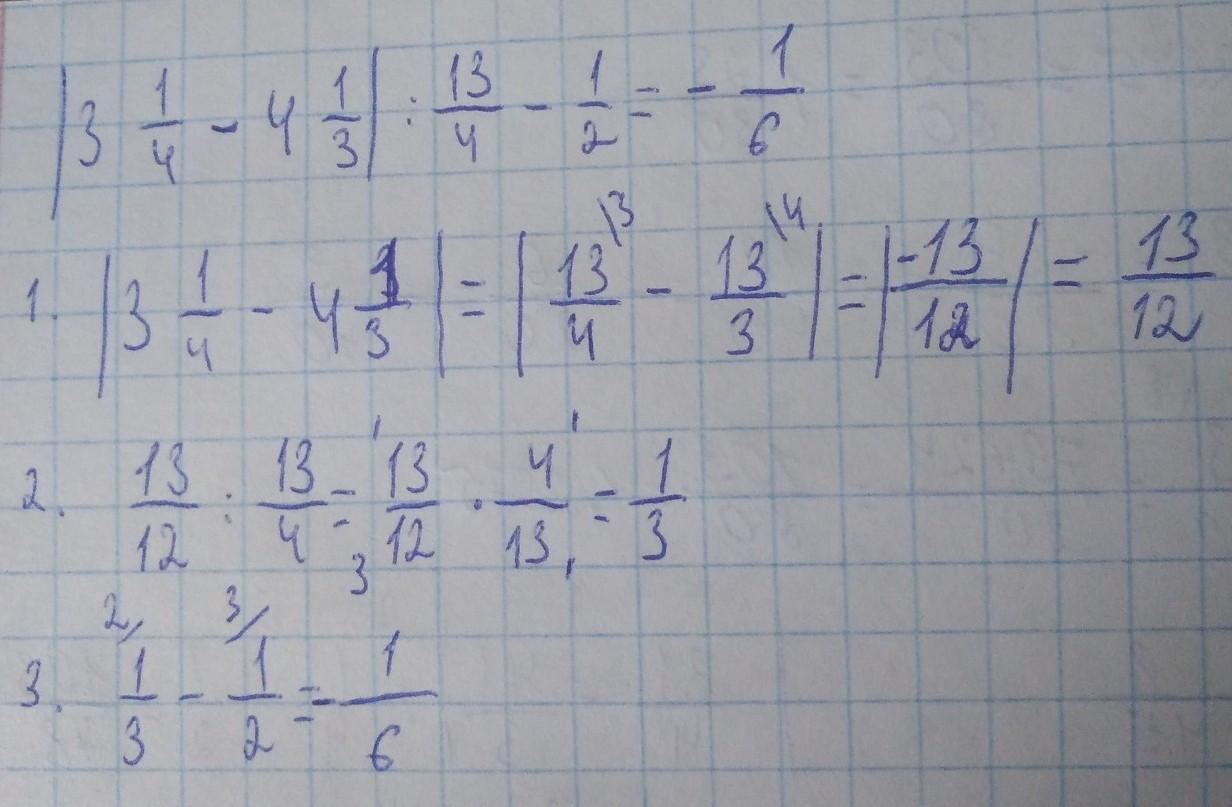 |3 1/4 - 4 1/3| : 13/4 - 1/2 = - 1/6
1. |3 1/4 - 4 1/3| = |13/4 \3 - 13/3 \4| = |-13/12| = 13/12
2. 13/12 : 13/4 = 13/12 · 4/13 = 1/3
3. 2/ 1/3 - 3/ 1/2 = - 1/6